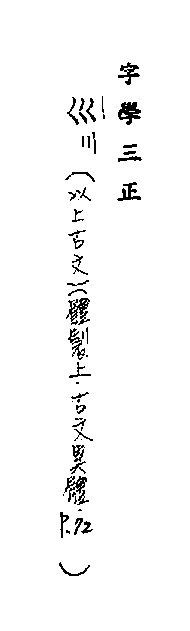 字學三正
巛川（以上古文）（體製上·古文異體·P.72）